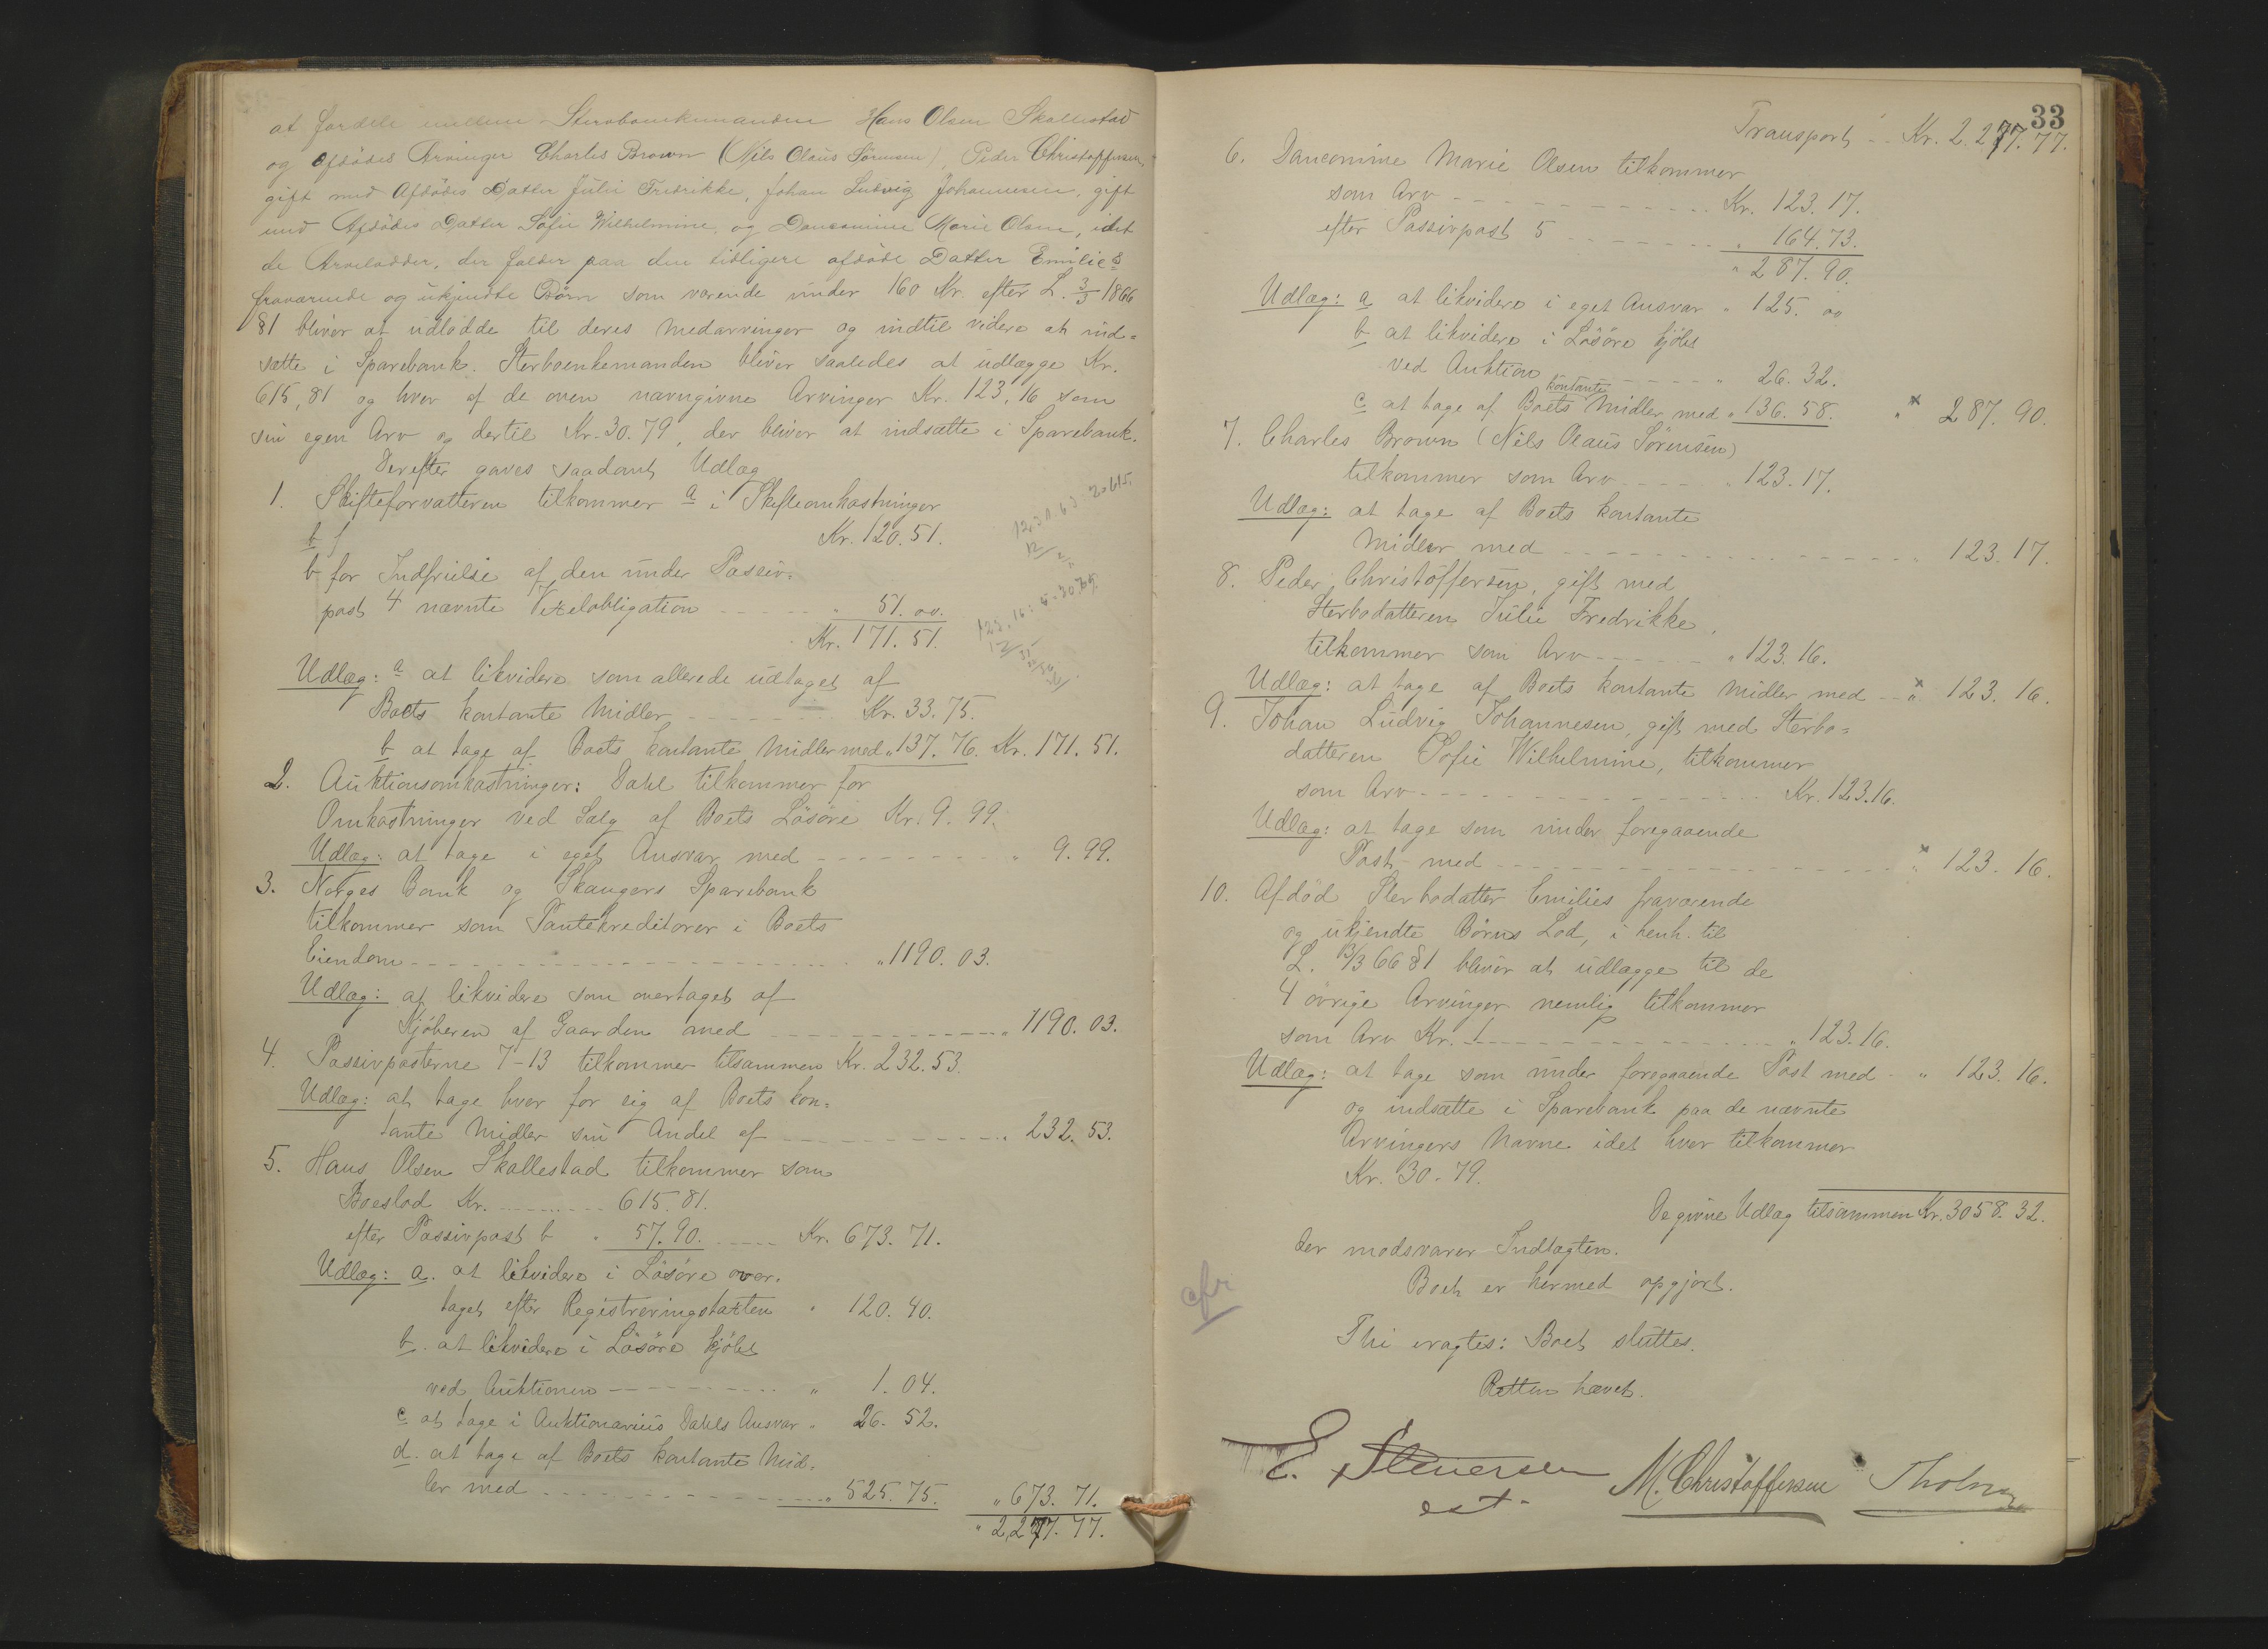 at fordele mellem Sterboenkemanden Hans Olsen Skallestad
og Afdødes Arvinger Charles Brown (Nils Olaus Sörensen), Peder Christoffersen,
gift med Afdødes Datter Julie Fredrikke, Johan Ludvig Johannesen, gift
med Afdødes Datter Sofie Wilhelmine og Dancomine Marie Olsen, idet
de Arvelodder, der falder paa den tidligere afdøde Datter Emilies
fraværende og ukjendte Børn som værende under 160 Kr. efter L. 3/3 1866
§1 bliver at udlodde til deres Medarvinger og indtil videre at ind=
sætte i Sparebank. Sterboenkemanden bliver saaledes at udlægge Kr.
615,81 og hver af de oven navngivne Arvinger Kr. 123,16 som
sin egen Arv og dertil Kr. 30.79, der bliver at indsætte i Sparebank.
Derefter gaves saadant Udlæg
1. Skifteforvalteren tilkommer a i Skifteomkostninger
b f Kr. 120.51.
b for Indfrielse af den under Passiv=
post 4 nævnte Vexelobligation " 51.00.
Kr. 171.51.
Udlæg: a at likvidere som allerede udtaget af
Boets kontante Midler Kr. 33.75.
b at tage af Boets kontante Midler med " 137.76. Kr. 171.51.
2. Auktionsomkostninger: Dahl tilkommer for
Omkostninger ved Salg af Boets Løsøre Kr. 9.99.
Udlæg: at tage i eget Ansvar med " 9.99.
3. Norges Bank og Skaugers Sparebank
tilkommer som Pantekreditorer i Boets
Eiendom " 1190.03.
Udlæg: at likvidere som overtaget af
Kjøberen af Gaarden med " 1190.03.
4. Passivposterne 7-13 tilkommer tilsammen Kr. 232.53.
Udlæg: at tage hver for sig af Boets kon=
tante Midler sin Andel af " 232.53.
5. Hans Olsen Skallestad tilkommer som
Boeslod Kr. 615.81.
efter Passivpost 6 " 57.90. Kr. 673.71.
Udlæg: a. at likvidere i Løsøre over=
taget efter Registreringstaxten " 120.40.
b. at likvidere i Løsøre kjøbt
ved Auktionen " 1.04.
c at tage i Auktionarius Dahls Ansvar " 26.52.
d. at tage af Boets kontante Mid=
ler med " 525.75. " 673.71.
" 2,277.77.
33
Transport Kr. 2.277.77.
6. Dancomine Marie Olsen tilkommer
som Arv Kr. 123.17.
efter Passivpost 5 " 164.73.
" 287.90.
Udlæg: a at likvidere i eget Ansvar " 125.00
b at likvidere i Løsøre kjøbt
ved Auktion " 26.32.
c at tage af Boets kontante Midler med " 136.58. " 287.90.
7. Charles Brown (Nils Olaus Sörensen)
tilkommer som Arv " 123.17.
Udlæg: at tage af Boets kontante
Midler med " 123.17.
8. Peder Christoffersen, gift med
Sterbodatteren Julie Fredrikke,
tilkommer som Arv " 123.16.
Udlæg: at tage af Boets kontante Midler med " 123.16.
9. Johan Ludvig Johannesen, gift med Sterbo=
datteren Sofie Wilhelmine, tilkommer
som Arv Kr. 123.16.
Udlæg: at tage som under foregaaende
Post med " 123.16.
10. Afdød Sterbodatter Emilies fraværende
og ukjendte Børns Lod, i henh. til
L. 3/3 66 §1 bliver at udlægge til de
4 øvrige Arvinger nemlig tilkommer
som Arv Kr. 1 " 123.16.
Udlæg: at tage som under foregaaende Post med " 123.16.
og indsætte i Sparebank paa de nævnte
Arvingers Navne idet hver tilkommer
Kr. 30.79.
De givne Udlæg tilsammen Kr. 3058.32.
der modsvarer Indtægten.
Boet er hermed opgjort.
cfr
Thi eragtes: Boet sluttes.
Retten hævet.
E. Stenersen M. Christoffersen Tholm
cst.